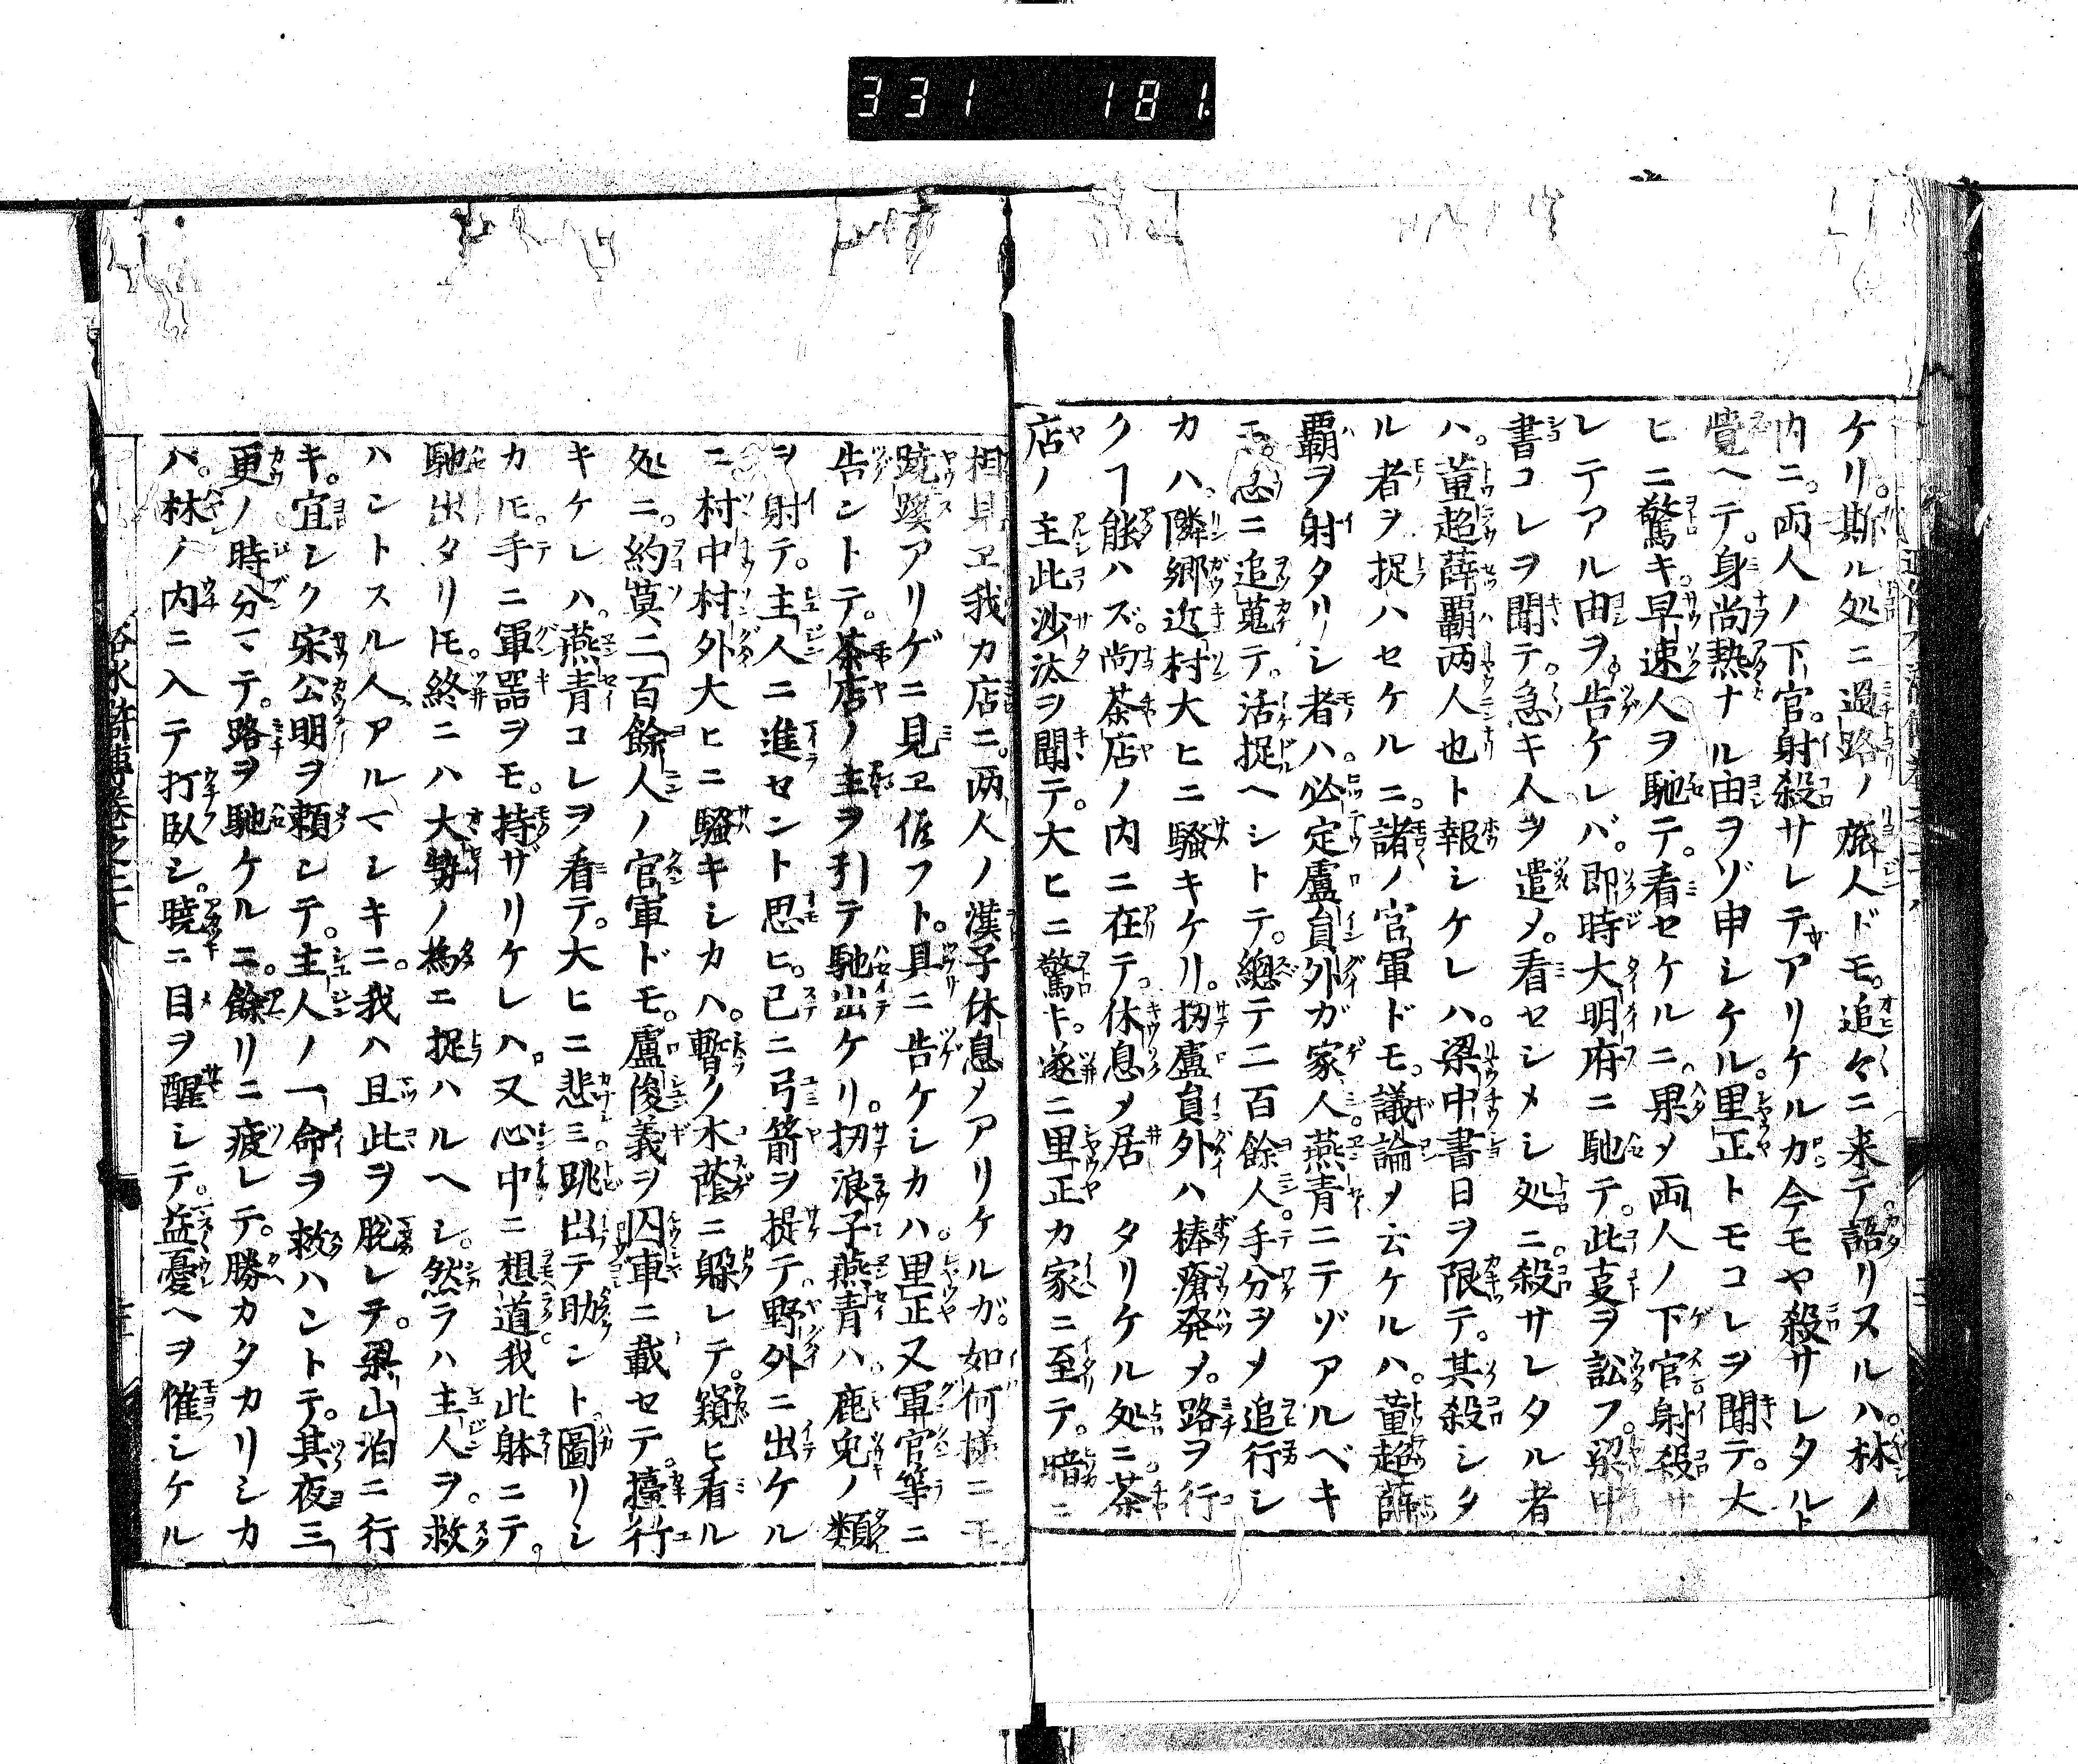 331 181
ケリ。斯ル処ニ過路ノ旅人ドモ。追々ニ来テ。語リヌルハ。林ノ
内ニ。両人ノ下官。射殺サレテアリケルカ。今モヤ殺サレタルト
覺ヘテ。身尚熱ナル由ヲゾ申シケル。里正トモコレヲ聞テ。大
ヒニ驚キ。早速人ヲ馳テ。看セケルニ。果メ両人ノ下官射殺サ
レテアル由ヲ。告ケレバ。即時大明府ニ馳テ。此支ヲ訟フ。梁中
書コレヲ聞テ。急キ人ヲ遣メ。看セシメシ処ニ。殺サレタル者
ハ。董超薛覇两人也ト報シケレハ。梁中書日ヲ限テ。其殺シタ
ル者ヲ捉ハセケルニ。諸ノ官軍ドモ。議論メ云ケルハ。董超薛
覇ヲ射タリシ者ハ。必定盧員外ガ家人。燕青ニテゾアルベキ
ニ追蒐テ。活捉ヘシトテ。總テ二百餘人。手分ヲメ追行シ
カハ。隣郷近村大ヒニ騒キケリ。扨盧員外ハ棒瘡発メ。路ヲ行
クヿ能ハズ。尚茶店ノ内ニ在テ。休息メ居タリケル処ニ。茶
店ノ主此沙汰ヲ聞テ。大ヒニ驚キ。遂ニ里正カ家ニ至テ。暗ニ
相見ヱ我カ店ニ。两人ノ漢子休息メアリケルガ。如何様ニモ
蹺蹊アリゲニ見ヱ候フト。具ニ告ケシカハ。里正又軍官等ニ
告ントテ。茶店ノ主ヲ引テ馳出ケリ。扨浪子燕青ハ。鹿兎ノ類
ヲ射テ。主人ニ進セント思ヒ。已ニ弓箭ヲ提テ。野外ニ出ケル
ニ村中村外大ヒニ騒キシカハ。暫ク木蔭ニ躱レテ。窺ヒ看ル
処ニ。約莫二百餘人ノ官軍ドモ。盧俊義ヲ囚車ニ載セテ。擡行
キケレハ。燕青コレヲ看テ。大ヒニ悲ミ。跳出テ助ント。圖リシ
カ𪜈。手ニ軍器ヲモ。持ザリケレハ。又心中ニ想道我此躰ニテ。
馳出タリ𪜈。終ニハ大勢ノ為ニ捉ハルヘシ。然ラハ主人ヲ。救
ハントスル人アルマシキニ。我ハ且此ヲ脱レテ。梁山泊ニ行
キ。宜シク宋公明ヲ頼シテ。主人ノ一命ヲ救ハントテ。其夜三
更ノ時分マテ。路ヲ馳ケルニ。餘リニ疲レテ。勝カタカリシカ
ハ。林ノ内ニ入テ打臥シ。曉ニ目ヲ醒シテ。益憂ヘヲ催シケル